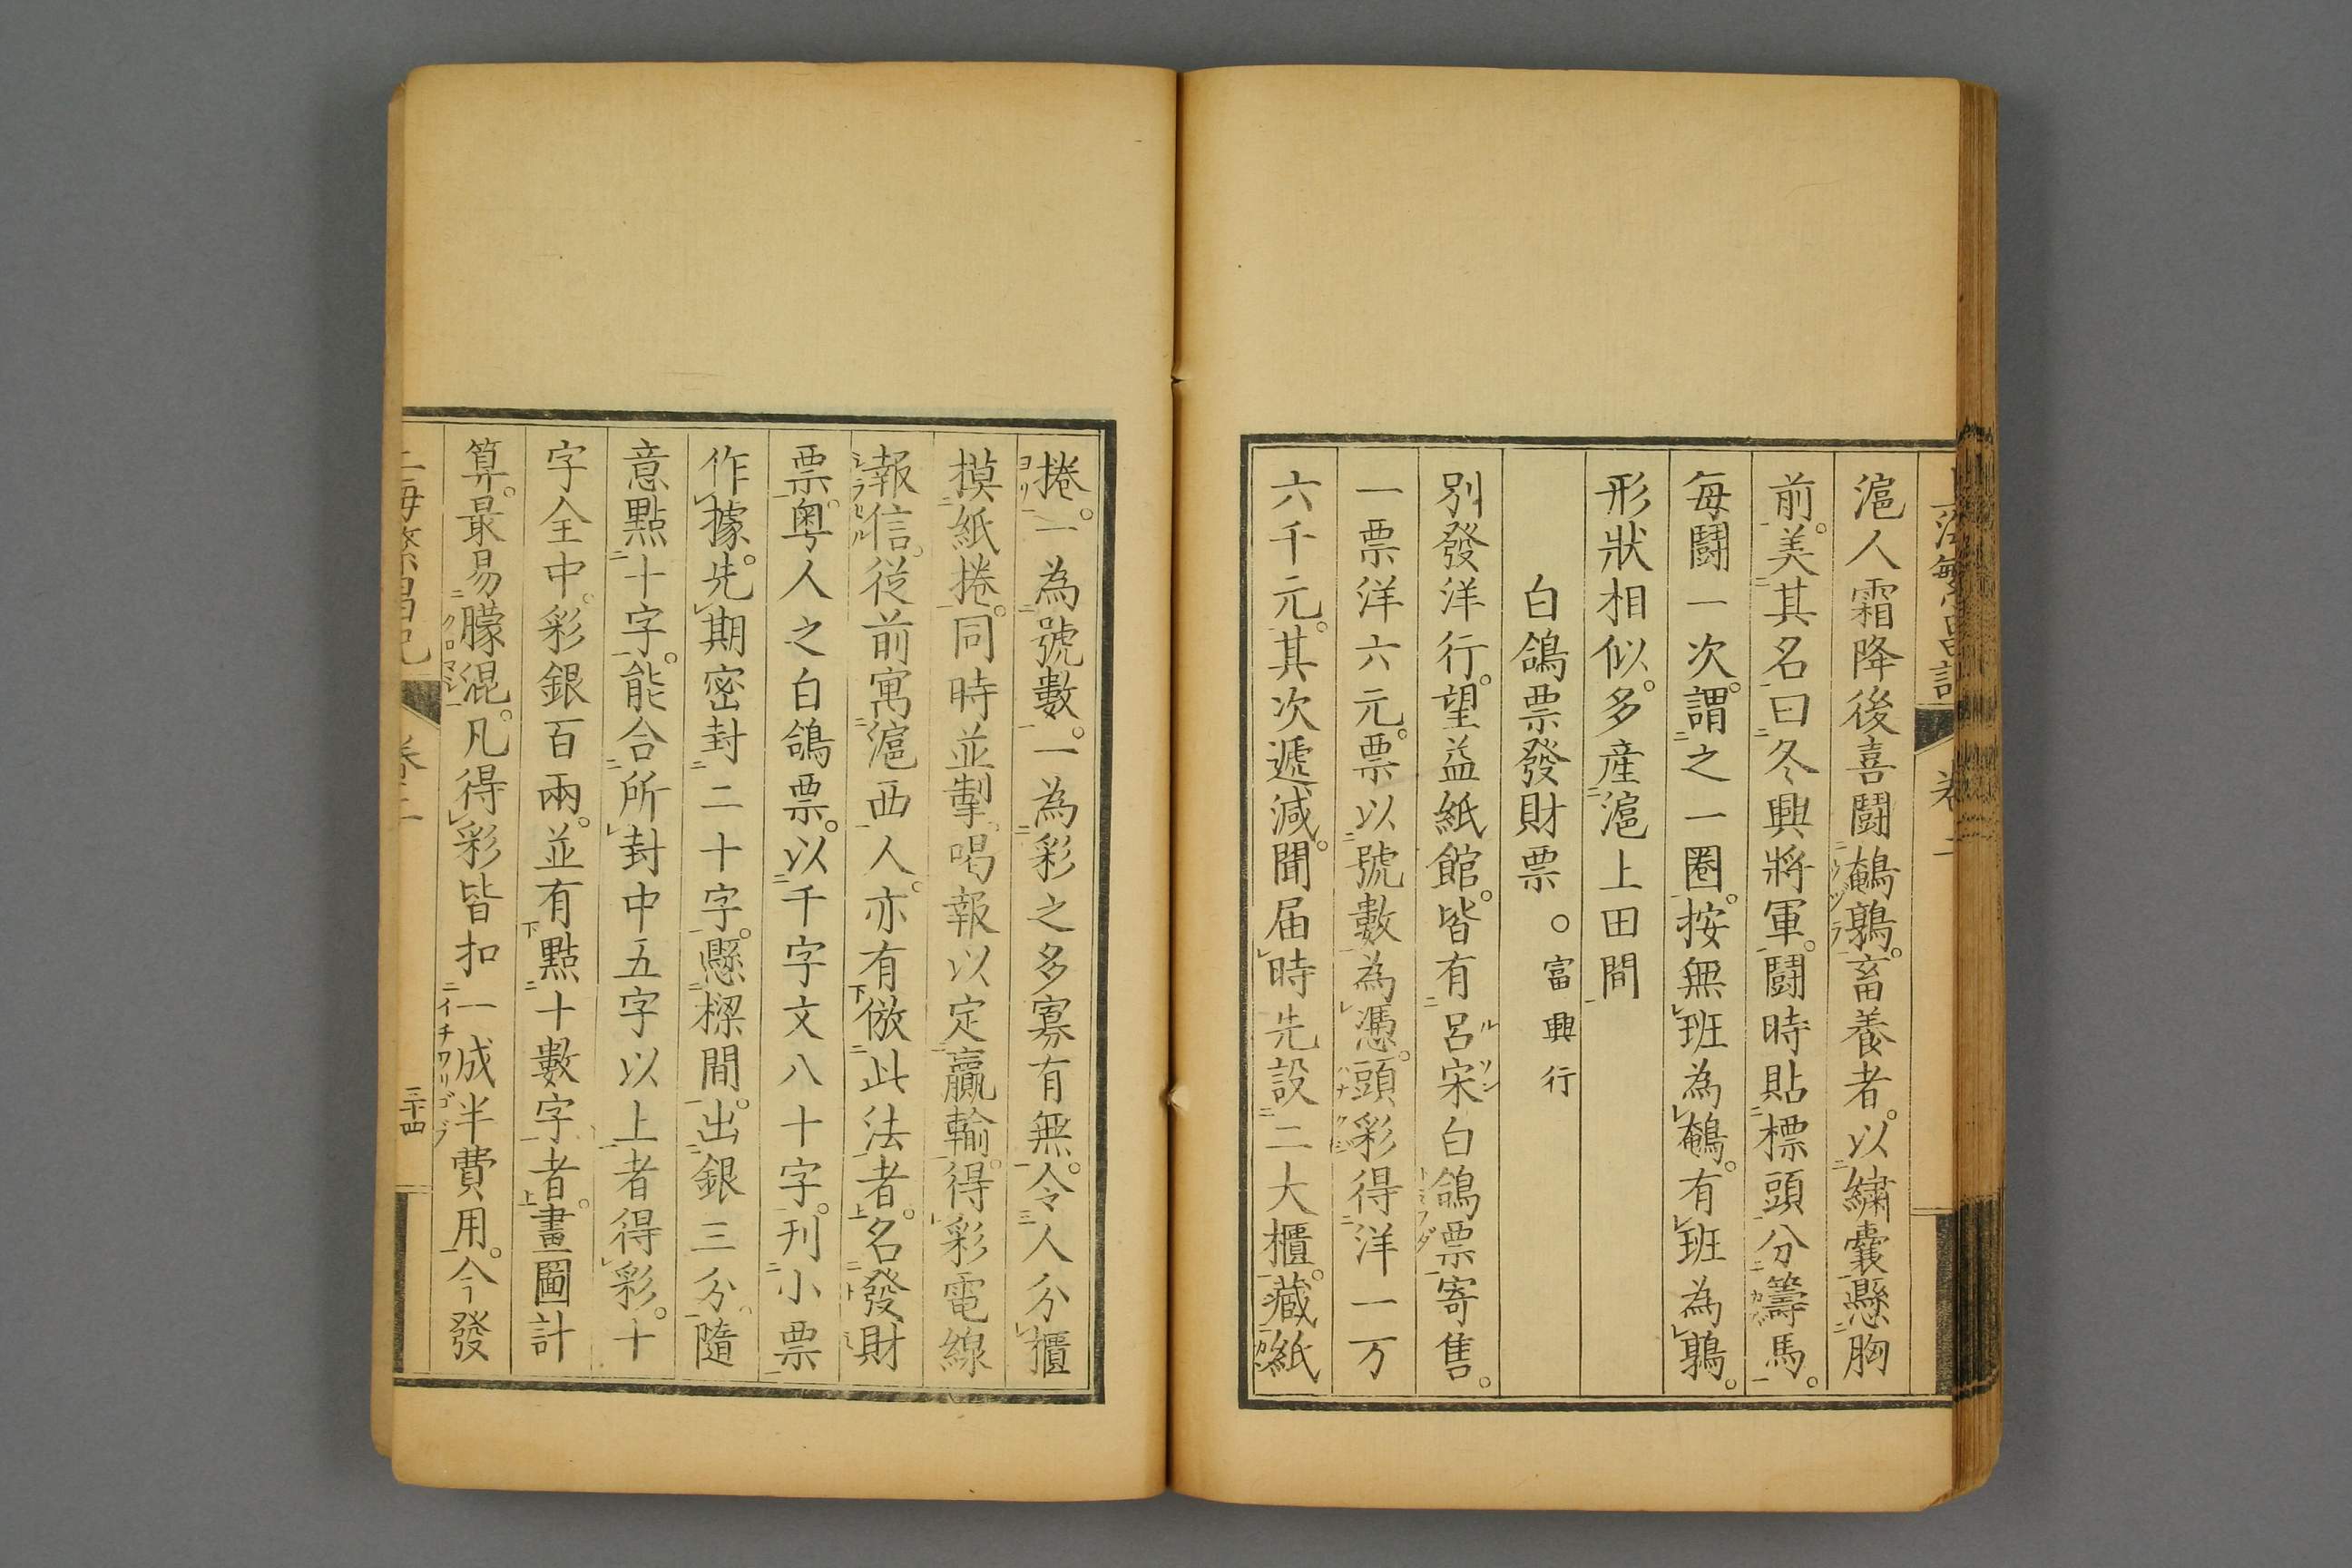 滬人霜降後喜鬪鵪鶉。畜養者。以繡囊懸胸
前。美其名曰冬興將軍。鬪時貼標頭分籌馬。
每鬪一次。謂之一圈。按無班為鵪。有班為鶉。
形狀相似。多産滬上田間
白鴿票發財票。富興行
別發洋行。望益紙館。皆有呂宋白鴿票寄售。
一票洋六元。票以號數為憑。頭彩得洋一万
六千元。其次遞減。聞届時先設二大櫃。藏紙
捲。一為號數。一為彩之多寡有無。令人分櫃
摸紙捲。同時並掣。喝報以定贏輸。得彩電線
報信。從前寓滬西人。亦有倣此法者。名發財
票。粤人之白鴿票。以千字文八十字。刊小票
作據。先期密封二十字。懸樑間。出銀三分。隨
意點十字。能合所封中五字以上者得彩。十
字全中。彩銀百兩。並有點十數字者。畫圖計
算。最易朦混。凡得彩皆扣一成半費用。今發
上海繁昌記 卷二 三十四